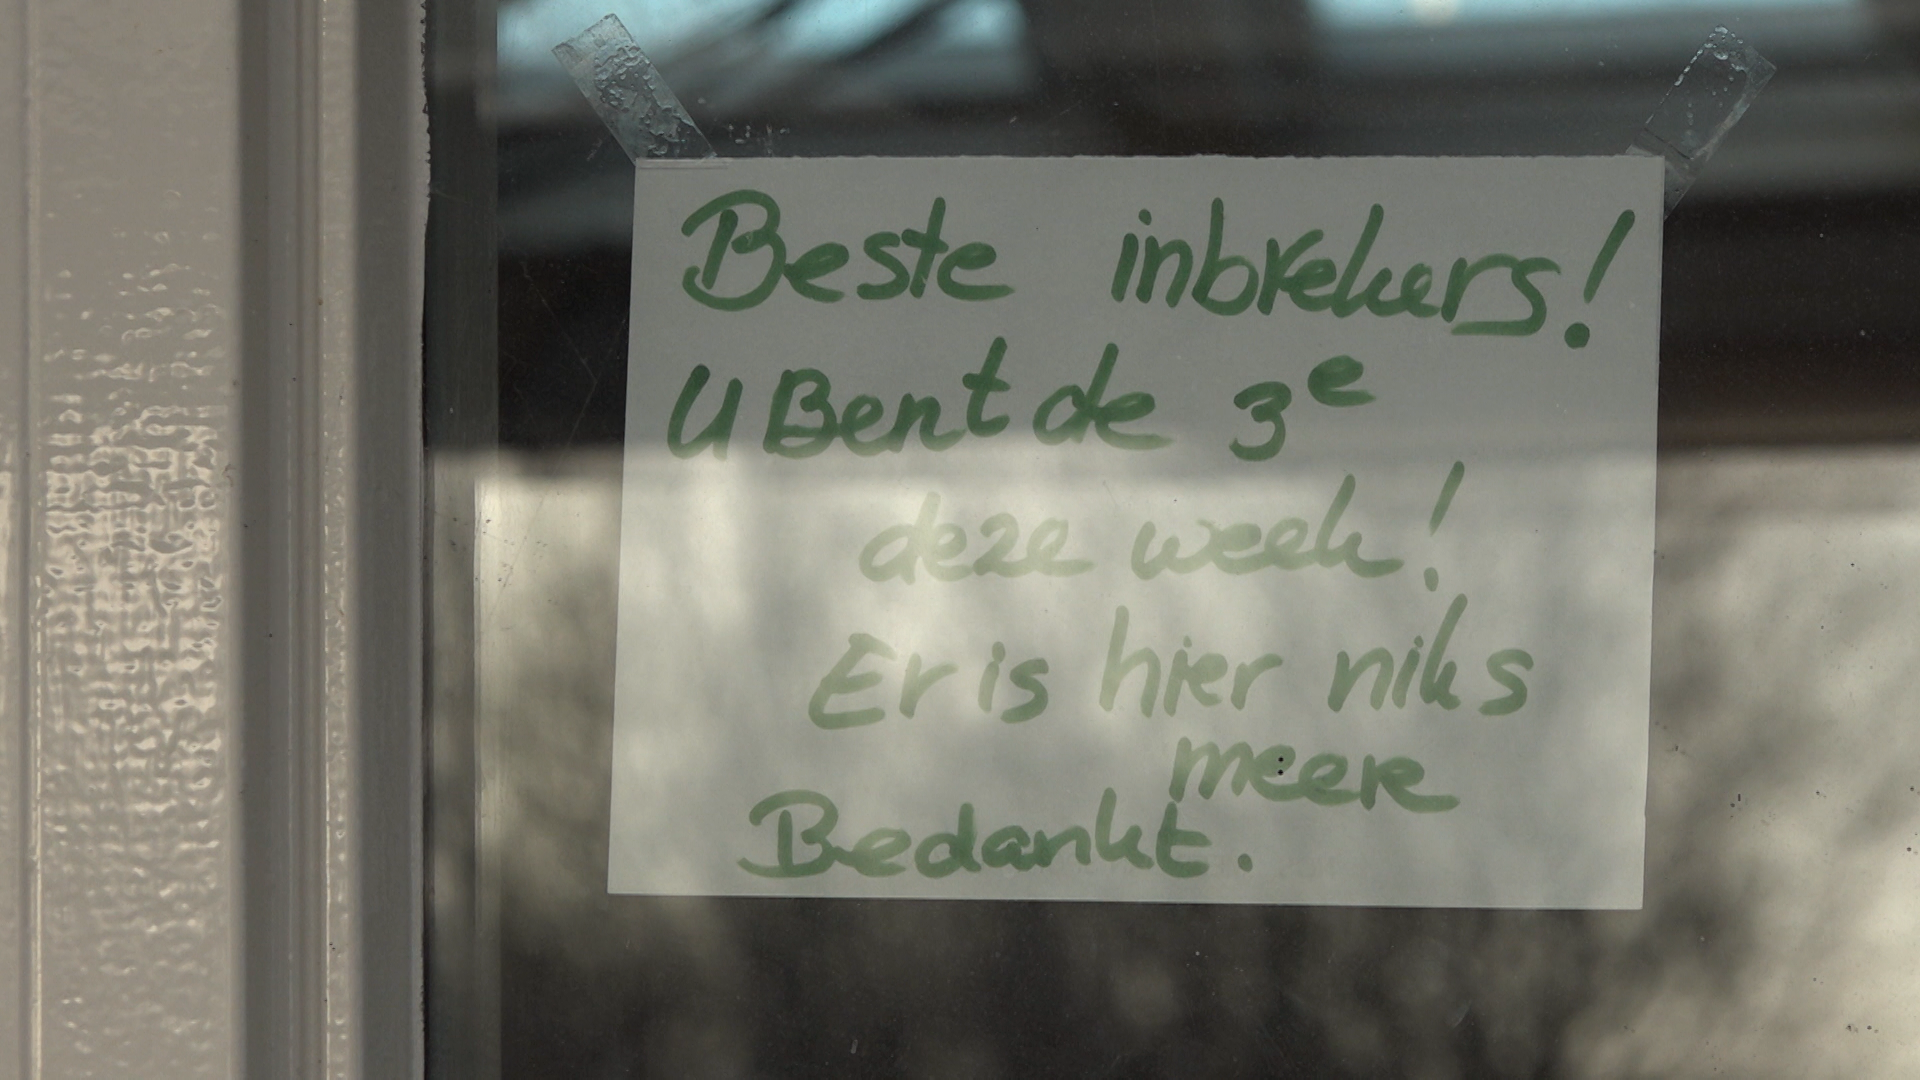 Beste inbrekers!
U Bent de 3e
deze week!
Er is hier niks
meer
Bedankt.